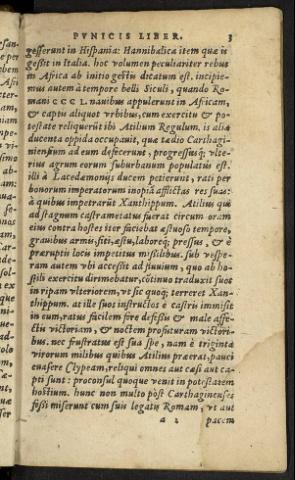 PVNICIS LIBER. 3
gesserunt in Hispania: Hannibalica item quæ is
gessit in Italia. hoc volumen peculiariter rebus
in Africa ab initio gestis dicatum est. incipie-
mus autem à tempore belli Siculi, quando Ro-
mani CCCL. nauibus appulerunt in Africam,
& captis aliquot vrbibus, cum exercitu & po-
testate reliquerūt ibi Atilium Regulum. is alia
ducenta oppida occupauit, quæ tædio Carthagi-
niensium ad eum defecerunt, progressusq; vlte-
rius agrum eorum suburbanum populatus est.
illi à Lacedæmonijs ducem petierunt, rati per
bonorum imperatorum inopiā afflictas res suas:
à quibus impetrarūt Xanthippum. Atilius qui
ad stagnum castrametatus fuerat circum oram
eius contra hostes iter faciebat æstuoso tempore,
grauibus armis, siti, æstu, laboreq; pressus, & è
præruptis locis impetitus missilibus. sub vespe-
ram autem vbi accessit ad fluuium, quo ab ho-
stili exercitu dirimebatur, cōtinuo traduxit suos
in ripam vlteriorem, vt sic quoq; terreret Xan-
thippum. at ille suos instructos è castris immisit
in eum, ratus facilem fore defessū & male affe-
cti victoriam, & noctem profuturam victori-
bus. nec frustratus est sua spe, nam è triginta
virorum milibus quibus Atilius præerat, pauci
euasere Clypeam, reliqui omnes aut cæsi aut ca-
pti sunt: proconsul quoque venit in potestatem
hostium. hunc non multo pòst Carthaginenses
fessi miserunt cum suis legatis Romam, vt aut
a 2 pacem